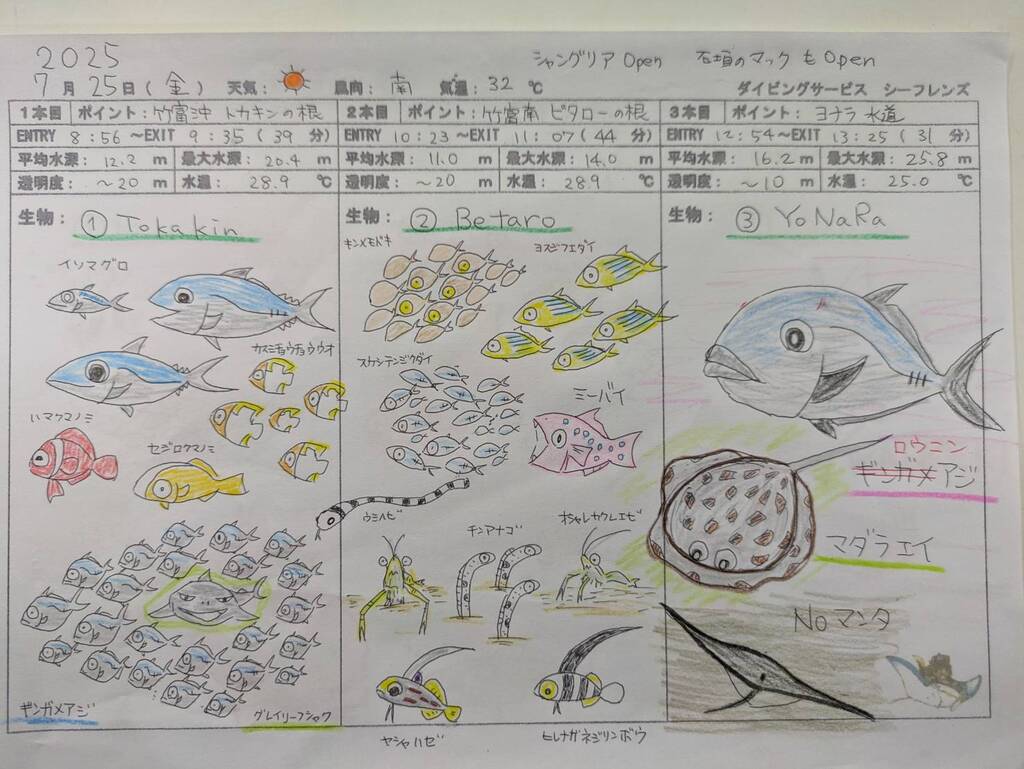 2025 シャングリア Open 石垣のマックも Open
7月 25日(金) 天気: 風向: 南 気温: 32 ℃ ダイビングサービス シーフレンズ
1本目 ポイント: 竹富沖 トカキンの根
ENTRY 8:56 ~EXIT 9:35 (39 分)
平均水深: 12.2 m 最大水深: 20.4 m
透明度: ~20 m 水温: 28.9 ℃
生物: ① Tokakin
イソマグロ
カスミチョウチョウウオ
ハマクマノミ
セジロクマノミ
ギンガメアジ
グレイリーフシャク
2本目 ポイント: 竹富南 ビタローの根
ENTRY 10:23 ~EXIT 11:07 (44 分)
平均水深: 11.0 m 最大水深: 14.0 m
透明度: ~20 m 水温: 28.9 ℃
生物: ② Betaro
キンメモドキ
ヨスジフエダイ
スカシテンジクダイ
ミーバイ
ウミヘビ
チンアナゴ
オシャレカクレエビ
ヤシャハゼ
ヒレナガネジリンボウ
3本目 ポイント: ヨナラ水道
ENTRY 12:54 ~EXIT 13:25 (31 分)
平均水深: 16.2 m 最大水深: 25.8 m
透明度: ~10 m 水温: 25.0 ℃
生物: ③ YoNaRa
ロウニン
ギンガメアジ
マダラエイ
Noマンタ